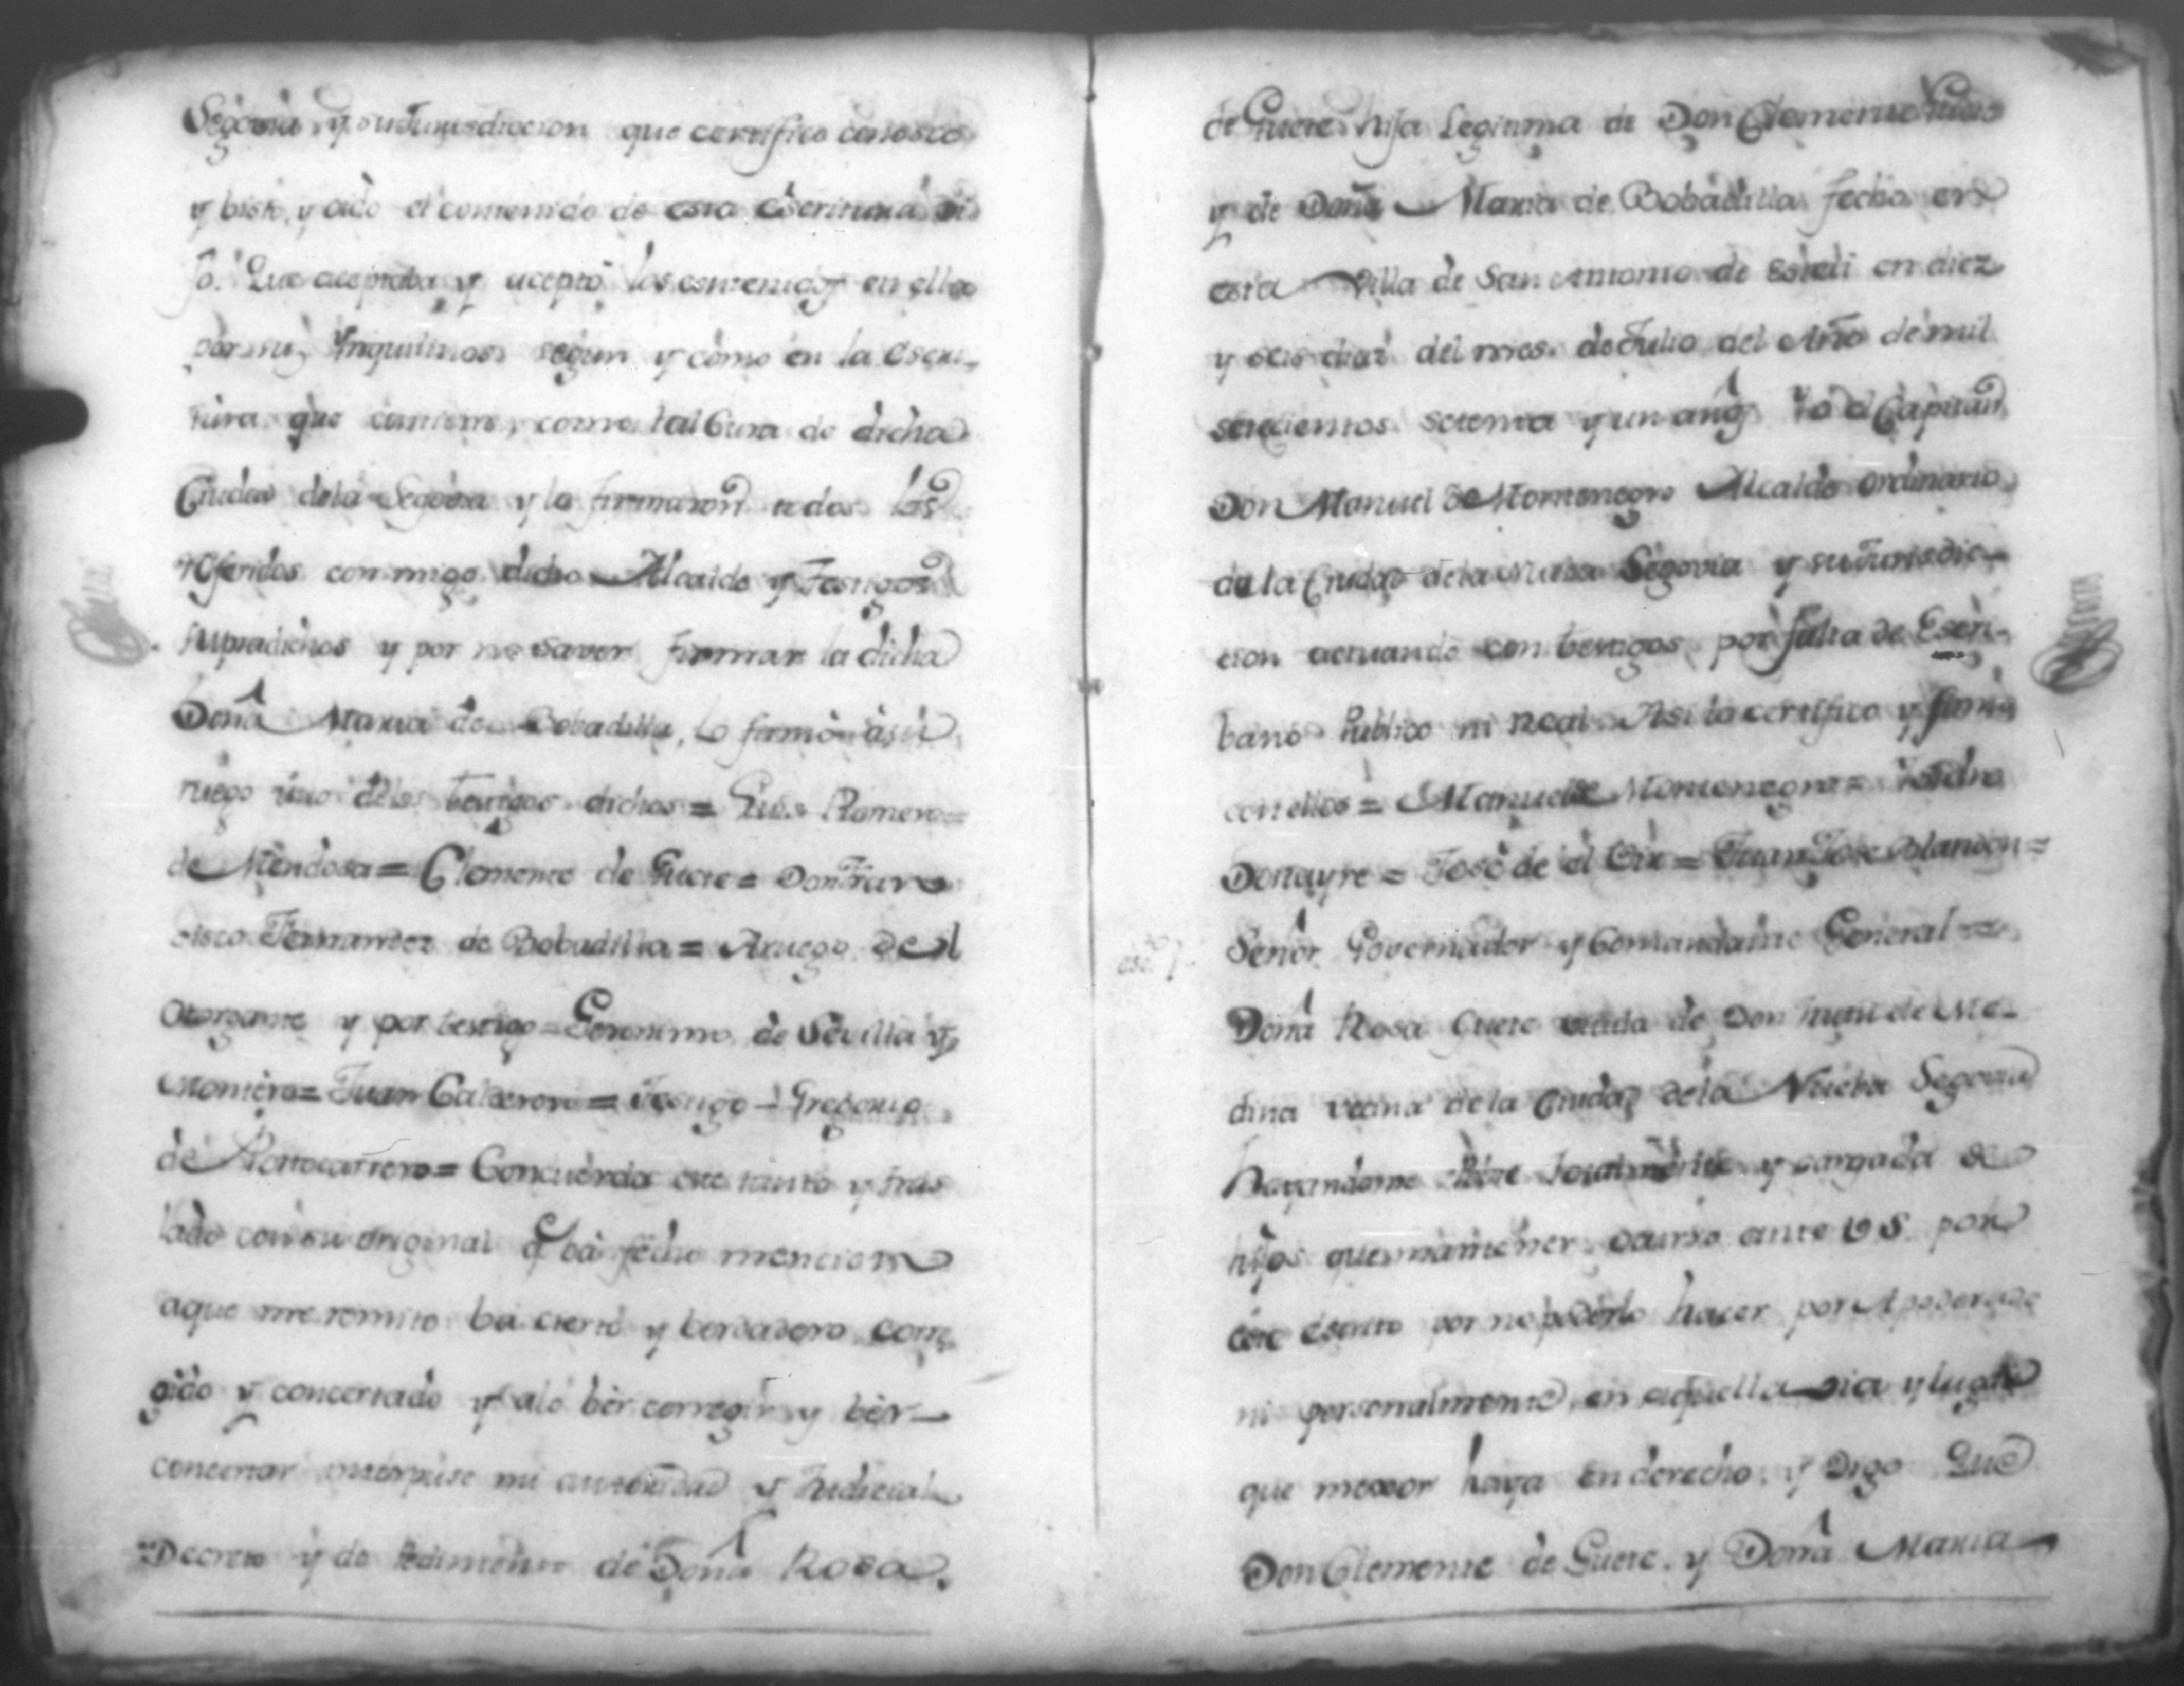 Segovia y su Jurisdiccion que certifico conosco
y bisto, y oido el contenido de esta Escritura di
jo. Que aceptaba y acepto los contenidos en ella
por sus Ynquilinos segun y como en la escri-
tura que contiene, como tal Cura de dicha
Ciudad dela Segovia y lo firmaron todos los
referidos conmigo dicho Alcalde y Testigos
supradichos y por no saver firmar la dicha
Doña Maria de Bobadilla, lo firmó à su
ruego uno delos testigos dichos = Luis Romero
de Mendosa = Clemente de Guete = Don Fran
sisco Fernandez de Bobadilla = Aruego del
otorgante y por testigo = Geronimo de Sevilla y
Romero = Juan Calderon = Testigo - Gregorio
de Portocarrero = Concuerda este tanto y tras
lado con su original q̃ bá fecho mencion
aque me remito ba cierto y berdadero corre
gido y concertado y aló bér corregir y bér
concertar interpuse mi autoridad y Judicial
Decreto y de Pedimento de Doña Rosa
de Guete hija Legitima de Don Clemente
y de Doña Maria de Bobadilla fecha en
esta Villa de San Antonio de Esteli en diez
y seis dias del mes de Julio del Año de mil
setecientos setenta y un añoş Yo el Capitan
Don Manuel de Montenegro Alcalde ordinario
de la Ciudad dela Nueba Segovia y su Jurisdic-
cion actuando con testigos por falta de Escri-
bano Publico ni Real Asi lo certifico y firmo
con ellos = Manuel de Montenegro = Isidro
Donayre = José de el = Juan José Blandon =
Señor Governador y Comandante General =
Doña Rosa Guete viuda de Don Juan de Me-
dina vecina dela Ciudad dela Nueba Segovia
hayandome y cargada de
hijos que mantener ocurro ante V S por
este escrito por no poderlo hacer por Apoderado
ni personalmente en aquella via y lugar
que mexor haya en derecho y Digo Que
Don Clemente de Guete. y Doña Maria